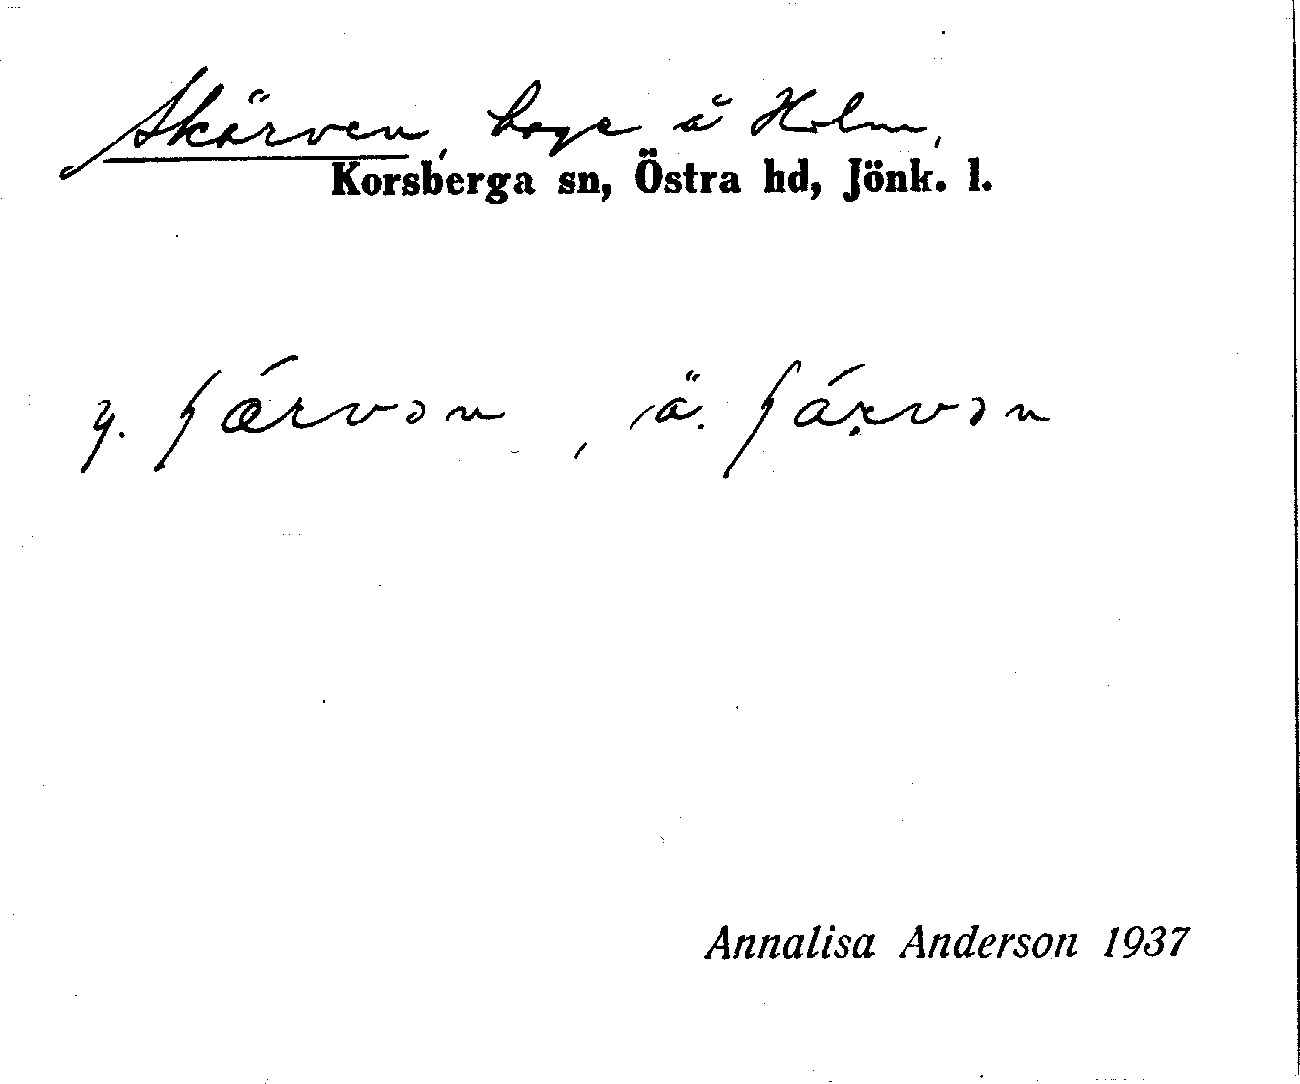 Skärven, hage å Holm,
Korsberga sn, Östra hd, Jönk. l.
y. ʃǽrvən, ä. ʃárvən
Annalisa Anderson 1937